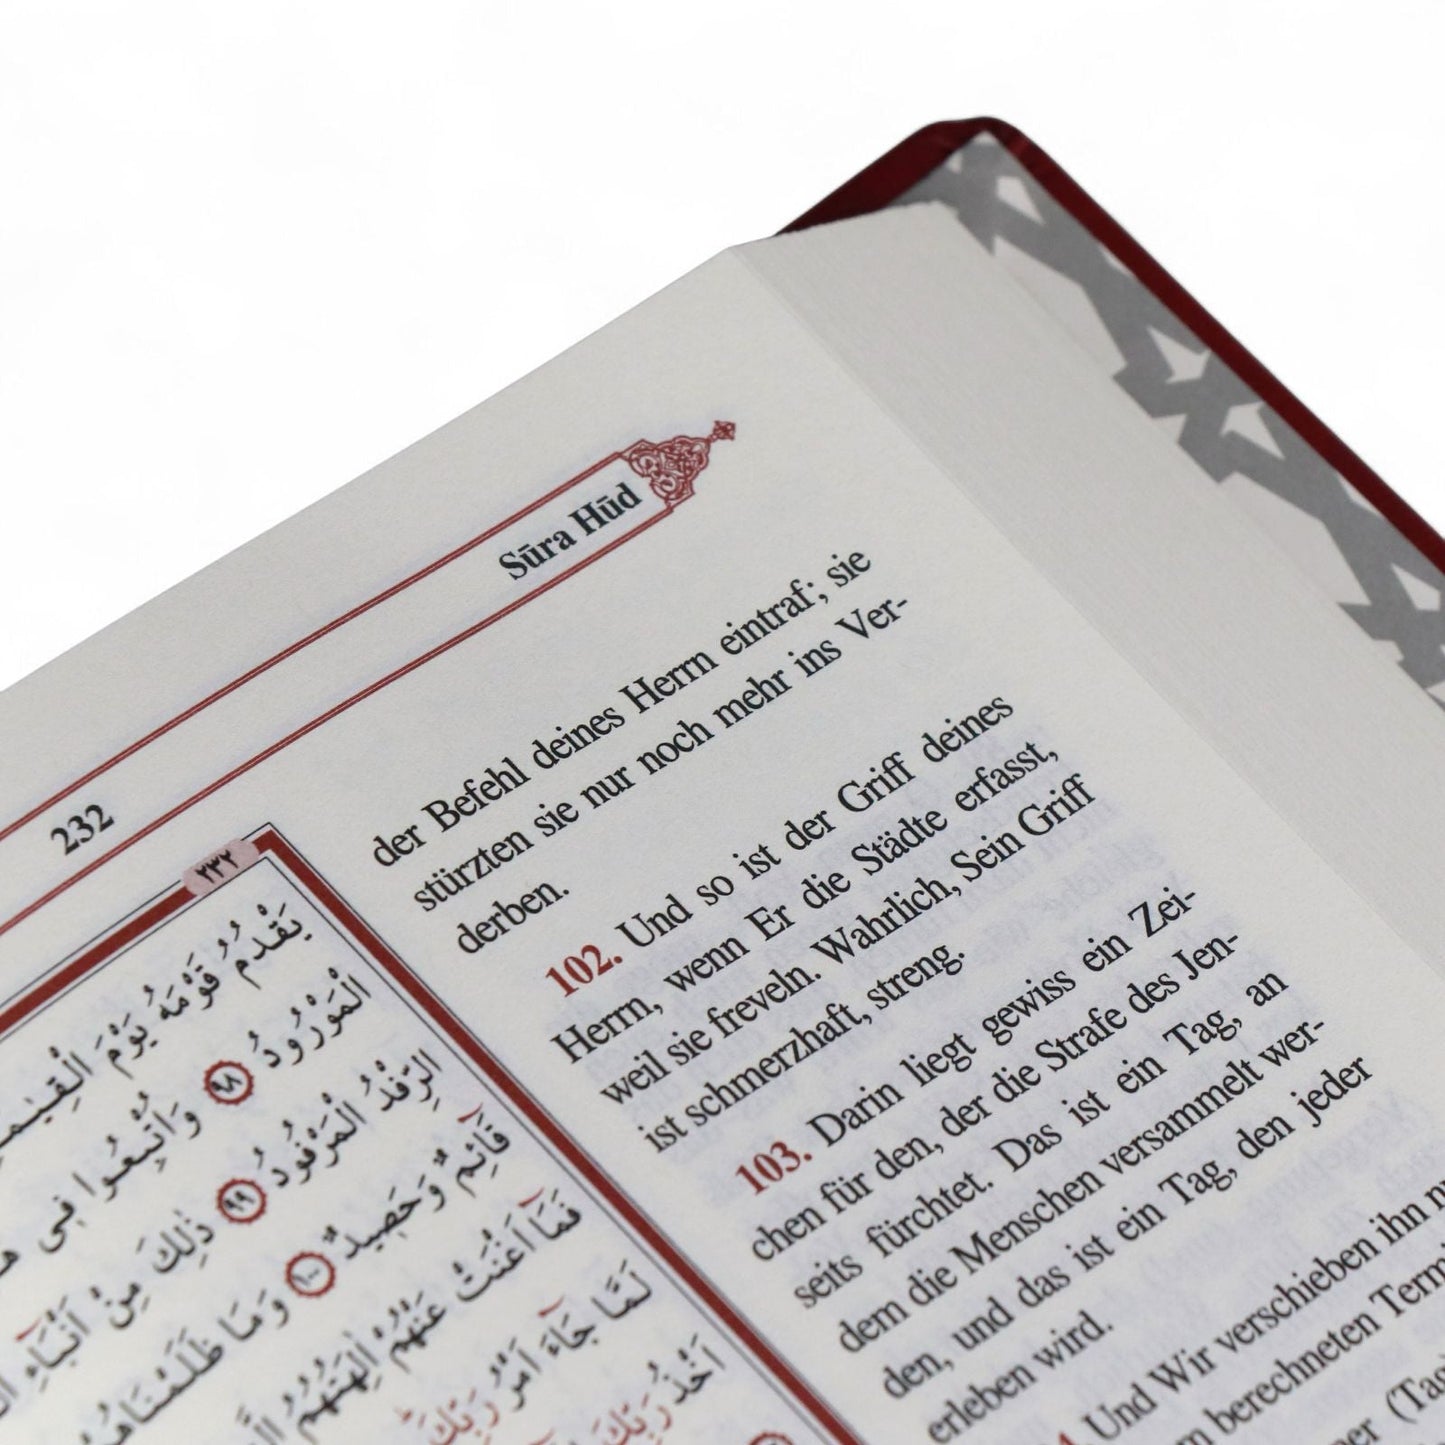 232
Sūra Hūd
der Befehl deines Herrn eintraf; sie
stürzten sie nur noch mehr ins Ver-
derben.
102. Und so ist der Griff deines
Herrn, wenn Er die Städte erfasst,
weil sie freveln. Wahrlich, Sein Griff
ist schmerzhaft, streng.
103. Darin liegt gewiss ein Zei-
chen für den, der die Strafe des Jen-
seits fürchtet. Das ist ein Tag, an
dem die Menschen versammelt wer-
den, und das ist ein Tag, den jeder
erleben wird.
Und Wir verschieben ihn
berechneten
(Tag
٢٣٢
يَقْدُمُ قَوْمَهُ يَوْمَ
الْمَوْرُودُ ٩٨ وَاُتْبِعُوا فِى
الرِّفْدُ الْمَرْفُودُ ٩٩ ذٰلِكَ مِنْ اَنْبَٓاءِ
قَٓائِمٌ وَحَصِيدٌ ١٠٠ وَمَا ظَلَمْنَاهُمْ
فَمَٓا اَغْنَتْ عَنْهُمْ اٰلِهَتُهُمُ
لَمَّا جَٓاءَ اَمْرُ رَبِّكَ
اَخْذُ رَبِّكَ